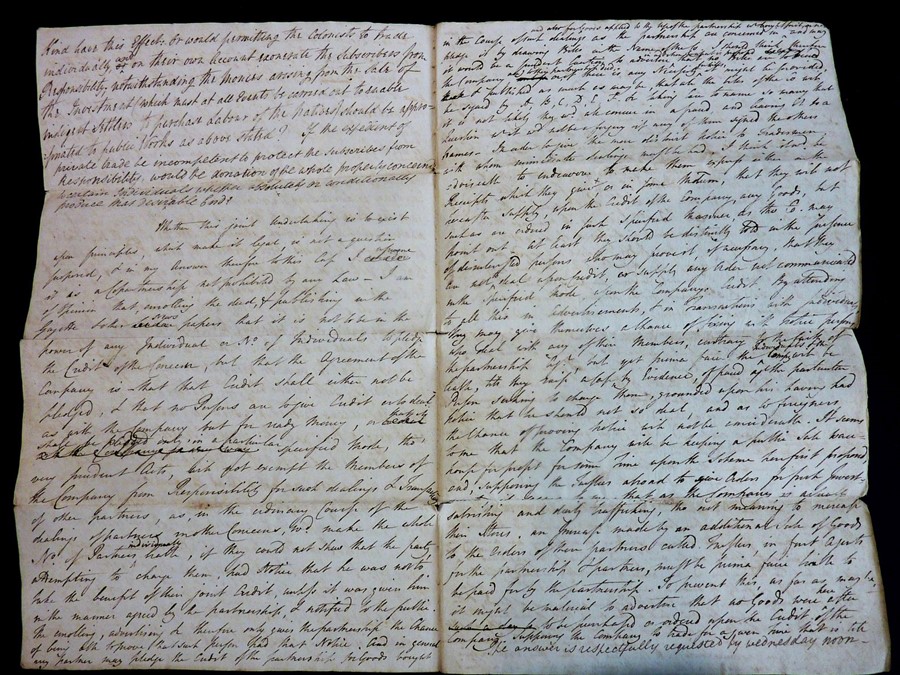 Kind have this Effect. Or would permitting the Colonists to trade
individually and on their own Account exonerate the Subscribers from
Responsibility, notwithstanding the monies arising from the Sale of
the Investment (which must at all Events be carried out to enable
indigent Settlers to purchase Labour of the Natives) should be appro-
priated to public Works as above stated? If the expedient of
private trade be incompetent to protect the subscribers from
Responsibility, would the donation of the whole property concerned
to certain Individuals whether absolutely or conditionally
produce that desirable Good?
Whether this joint Undertaking is to exist
upon principles which make it legal, is not a question
proposed, & in my Answer therefore to this Case I assume
it is a Copartnership not prohibited by any Law — I am
of Opinion that enrolling the deed, & publishing in the
Gazette & other news papers that it is not to be in the
power of any Individual or No. of Individuals to pledge
the Credit of the Concern, but that the Agreement of the
Company is that that Credit shall either not be
pledged, & that no Persons are to give Credit or to deal
with the Company but for ready Money, or that it
shall be pledged only in a particular specified Mode, tho
very prudent Acts, will not exempt the Members of
the Company from Responsibility for such dealings & Transactions
of other partners, as, in the ordinary Course of the
dealings of partners in other Concerns, wd. make the whole
No. of Partners individually liable, if they could not shew that the party
attempting to charge them, had Notice that he was not to
take the benefit of their joint Credit, unless it was given him
in the manner agreed by the partnership & notified to the public.
The enrolling, advertising &c therefore only gives the partnership the Chance
of being able to prove that such person had that Notice. And in general
any partner may pledge the Credit of the partnership for Goods bought
and also for Goods applied to the use of the partnership tho bought
in the Course of such dealings as the partnership are concerned in, and may
pledge it by drawing Bills in the Name of the Co. I should think therefore
it would be a prudent Caution to advertise that no Bills are to bind
the Company
be signed by A, B, C, D, E, F, or taking care to name so many that
it is not likely they wd. all concur in a fraud and leaving it to a
Question
names. In order to give the more distinct notice to Tradesmen
with whom immediate dealings may be had, I think it wd. be
adviseable to endeavour to make them express either in the
Receipts which they give or in some Matter, that they will not
hereafter supply, upon the Credit of the Company, any Goods, but
such as are ordered in such specified manner as the Co. may
point out — at least they should be distinctly told in the presence
of disinterested persons who may prove it, if necessary, that they
are not to deal upon Credit or supply any Order not communicated
in the specified mode upon the Company's Credit. By attending
to all this in advertisements, & in Transactions with individuals
they may give themselves a chance of fixing with notice persons
who deal with any of their Members, contrary to
the partnership but yet prima facie the
liable, till they
Person seeking to charge them, grounded upon his having had
notice that he should not so deal, and as to foreigners
the Chance of proving notice will not be considerable. It seems
to me that the Company will be keeping a public Sale ware-
house for profit for some Time upon the Scheme here first proposed
and, supposing the Settlers abroad to give Orders for fresh Invest-
that as the Company is actually
subsisting and duely trafficking, tho not meaning to increase
their Stores, an Increase made by an additional Sale of Goods
to the Orders of their partners called Settlers, in fact Agents
for the partnership & partners, must be prima facie liable to
be paid for by the partnership. To prevent this as far as may be,
it might be material to advertise that no Goods were after
to be purchased or ordered upon the Credit of the
Company, supposing the Company to trade for a given time that is, till
The answer is respectfully requested by wednesday noon—